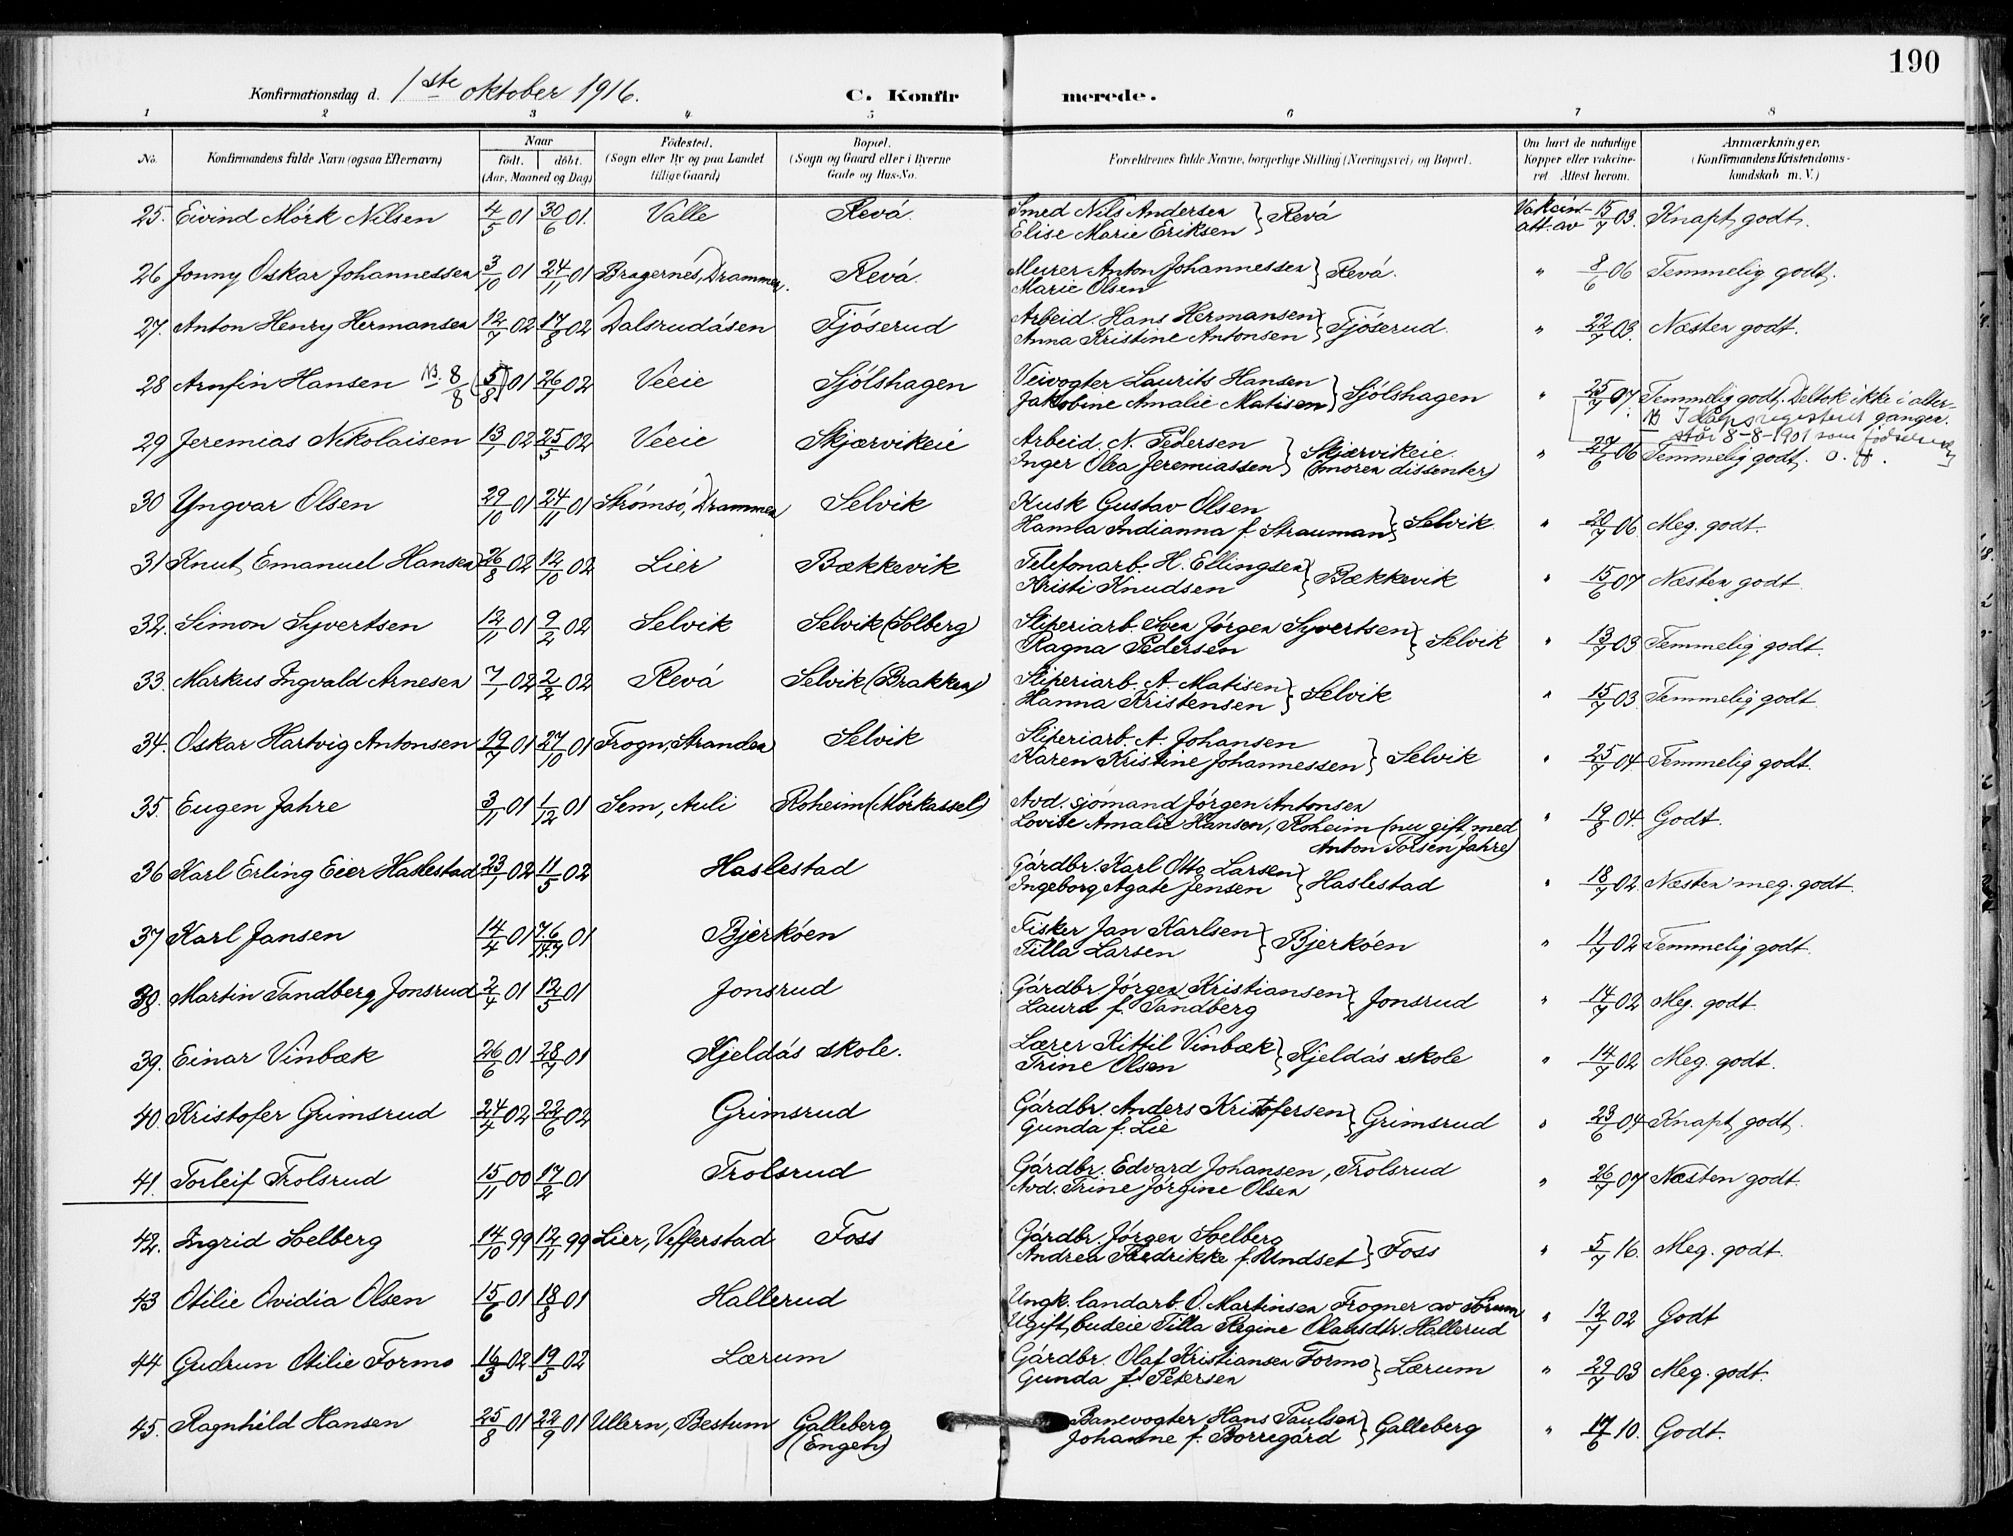 190
Konfirmationsdag d. 1ste oktober 1916. C. Konfirmerede.
1 2 3 4 5 6 7 8
No. Konfirmandens fulde Navn (ogsaa Efternavn) Naar födt. döbt. (Aar, Maaned og Dag) Födested. (Sogn eller By og paa Landet tillige Gaard) Bopæl. (Sogn og Gaard eller i Byerne Gade og Hus-No. Forældrenes fulde Navne, borgerlige Stilling (Næringsvei) og Bopæl. Om havt de naturlige Kopper eller vakcineret. Attest herom. Anmærkninger, (Konfirmandens Kristendomskundskab m. V.)
25. Eivind Mörk Nilsen 4/5 01 30/6 01. Valle Revå. Smed Nils Andersen } Revå Vakcin. 15/7 03. Knapt godt.
Elise Marie Eriksen att. av
26 Jonny Oskar Johannessen 3/10 01 24/11 01 Bragernes, Drammen. Revå. Murer Anton Johannessen } Revå. " 8/6 06 Temmelig godt.
Marie Olsen
27. Anton Henry Hermansen 12/7 02 17/8 02 Dalsrudåsen Tjöserud Arbeid. Hans Hermansen } Tjöserud. " 22/7 03. Næsten godt.
Anna Kristine Antonsen
28 Arnfin Hansen NB. 8/8 (5/8) 01 26/1 02 Veeie Sjölshagen Veivogter Laurits Hansen } Sjölshagen " 25/7 07 Temmelig godt. Deltok ikke i alter-
Jakobine Amalie Matisen gangen.
NB I dåpsregisteret
står 8-8-1901 som födselsdag
29 Jeremias Nikolaisen 13/1 02 25/5 02 Veeie Skjærvikeie Arbeid. N. Pedersen } Skjærvikeie. " 27/6 06 Temmelig godt.
Inger Olea Jeremiassen (moren dissenter)
30 Yngvar Olsen 29/10 01 24/11 01 Strömsö, Drammen Selvik Kusk Gustav Olsen } Selvik " 20/7 06 Meg. godt.
Hanna Indianna f. Strauman
31 Knut Emanuel Hansen 26/8 02 12/10 02 Lier Bækkevik Telefonarb. H. Ellingsen } Bækkevik " 15/6 07 Næsten godt.
Kristi Knudsen
32. Simon Syvertsen 12/11 01 9/2 02 Selvik Selvik (Solberg) Sliperiarb. Sven Jörgen Syvertsen } Selvik " 13/7 03 Temmelig godt.
Ragna Pedersen
33. Markus Ingvald Arnesen 7/1 02 2/2 02 Revå Selvik (Brakken) Sliperiarb. A. Matisen } Selvik " 15/7 03. Temmelig godt.
Hanna Kristensen
34. Oskar Hartvig Antonsen 19/7 01 27/10 01 Frogn, Stranden Selvik Sliperiarb. A. Johansen } Selvik " 25/7 04. Temmelig godt.
Karen Kristine Johannessen
35. Eugen Jahre 3/11 01 1/12 01 Sem, Auli Roheim (Mörkassel) Avd. sjömand Jörgen Antonsen " 19/8 04. Godt.
Lovise Amalie Hansen, Roheim (nu gift med
Anton Torsen Jahre)
36 Karl Erling Eier Haslestad 23/1 02 11/5 02 Haslestad Gårdbr. Karl Otto Larsen } Haslestad " 18/7 02. Næsten meg. godt.
Ingeborg Agate Jensen
37 Karl Jansen 14/4 01 7.6/14.7 01 Bjerköen Fisker Jan Karlsen } Bjerköen " 11/7 02 Temmelig godt.
Tilla Larsen
38. Martin Tandberg Jonsrud 2/4 01 12/5 01 Jonsrud Gårdbr. Jörgen Kristiansen } Jonsrud " 14/7 02 Meg. godt
Laura f. Tandberg
39. Einar Vinbæk 26/6 01 28/7 01 Kjeldås skole. Lærer Kittil Vinbæk } Kjeldås skole " 14/7 02 Meg. godt.
Trine Olsen
40. Kristofer Grimsrud 24/4 02 22/6 02 Grimsrud Gårdbr. Anders Kristofersen } Grimsrud " 23/6 04 Knapt godt.
Gunda f. Lie
41. Torleif Trolsrud 15/11 00 17/2 01 Trolsrud Gårdbr. Edvard Johansen, Trolsrud " 26/7 07 Næsten godt.
Avd. Trine Jörgine Olsen
42. Ingrid Solberg 14/10 99 12/11 99 Lier, Vefferstad Foss Gårdbr. Jörgen Solberg } Foss " 5/7 16. Meg. godt.
Andrea Fredrikke f. Undset
43 Otilie Ovidia Olsen 15/6 01 18/8 01 Hallerud Ungk. landarb. O. Martinsen Frogner av Sörum " 12/7 02 Godt
Ugift budeie Tilla Regine Olausdtr. Hallerud
44 Gudrun Otilie Formo 16/3 02 19/5 02 Lærum Gårdbr. Olaf Kristiansen Formo } Lærum " 29/7 03 Meg. godt.
Gunda f. Petersen
45. Ragnhild Hansen 25/8 01 22/9 01 Ullern, Bestum Galleberg Banevogter Hans Paulsen } Galleberg " 17/6 10. Godt.
(Engen) Johanne f. Borregård